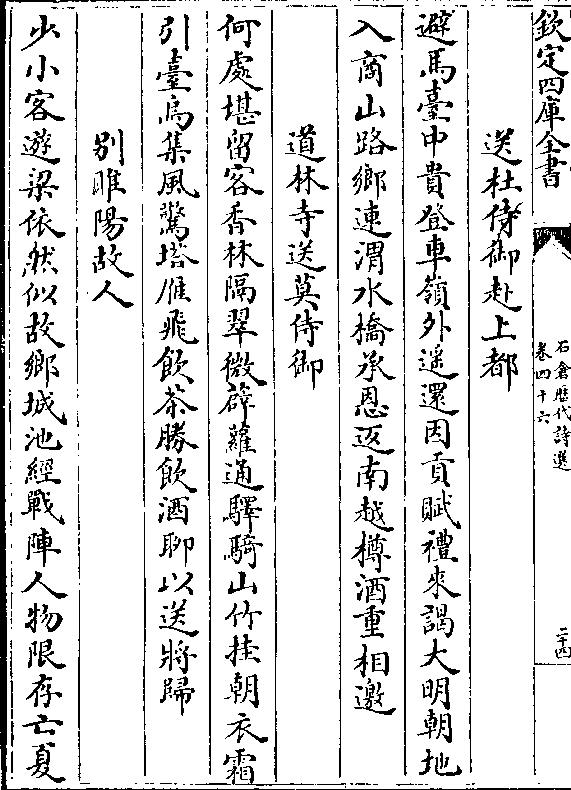 欽定四庫全書
石倉歷代詩選
卷四十六
二十四
送杜侍御赴上都
避馬臺中貴登車嶺外遥還因貢賦禮來謁大明朝地
入商山路鄉連渭水橋承恩返南越樽酒重相邀
道林寺送莫侍御
何處堪留客香林隔翠微薜蘿通驛騎山竹挂朝衣霜
引臺烏集風驚塔雁飛飲茶勝飲酒聊以送將歸
別睢陽故人
少小客遊梁依然似故鄉城池經戰陣人物限存亡夏